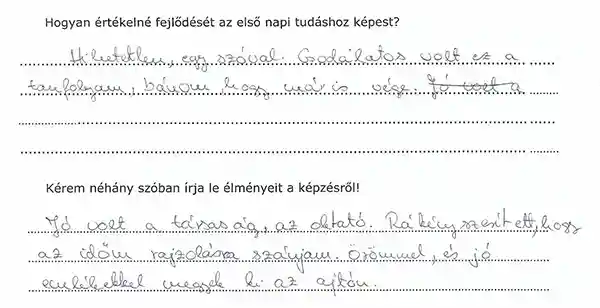 Hogyan értékelné fejlődését az első napi tudáshoz képest?
Hihetetlen, egy szóval. Csodálatos volt ez a
tanfolyam, bánom, hogy már is vége. Jó volt a
Kérem néhány szóban írja le élményeit a képzésről!
Jó volt a társaság, az oktató. Rákényszerített, hogy
az időm rajzolásra szánjam. Örömmel, és jó
emlékekkel megyek ki az ajtón.